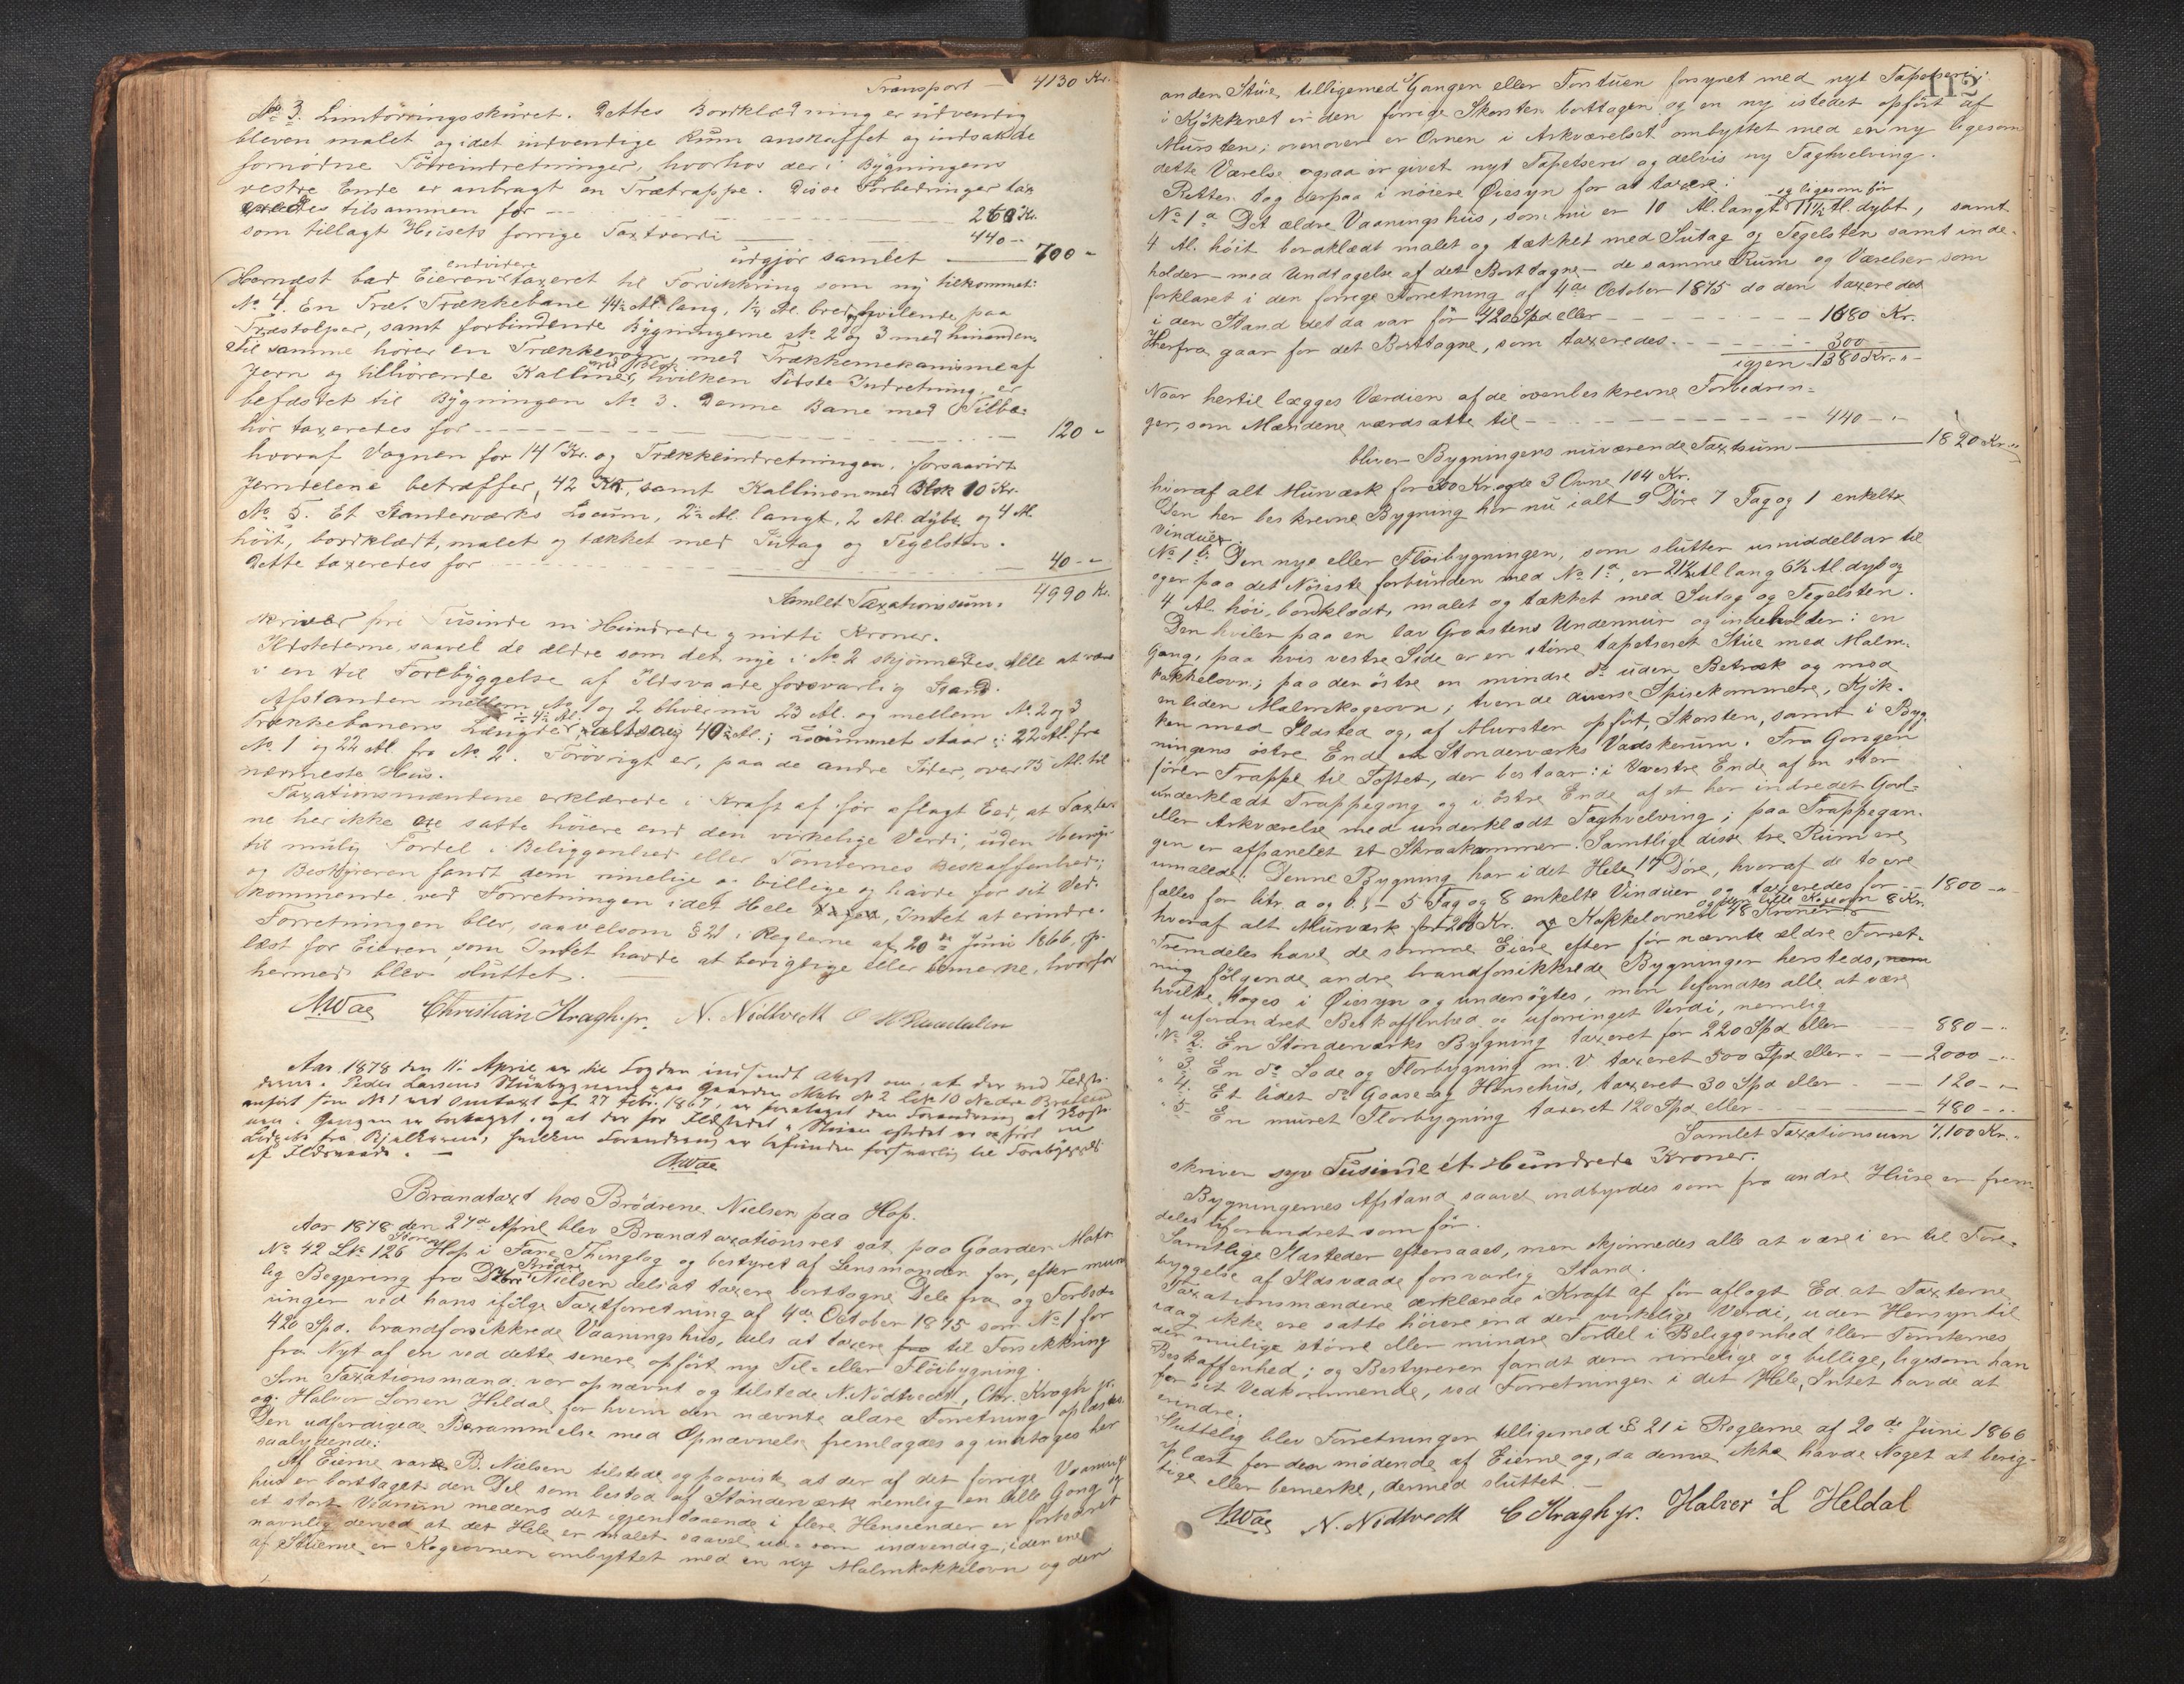 Transport — 4130 Kr.
No 3. Limtörringsskuret. Dettes Bordklædning er udvendig
bleven malet og i det indvendige Rum anskaffet og indsat de
fornödne Törreindretninger, hvorhos der i Bygningens
vestre Ende er anbragt en Trætrappe. Disse Forbedringer tax
eredes tilsammen for — 260 Kr.
som tillagt Husets forrige Taxtværdi — 440 -
udgjör samlet — 700 -
Hernæst bad Eieren endvidere taxeret til Forsikkring som ny tilkommet:
No 4. En Træ-Trækkebane 44½ Al. lang, 1½ Al. bred, hvilende paa
Træstolper, samt forbindende Bygningerne No 2 og 3 med hinanden.
Til samme hörer en Trækkevogn med Trækkemekanisme af
Jern og tilhörende Kalliner, hvilken sidste Indretning er
befæstet til Bygningen No 3. Denne Bane med Tilbe-
hör taxeredes for — 120 -
hvoraf Vognen for 14 Kr. og Trækkeindretningen, forsaavidt
Jerndelene betræffer, 42 Kr, samt Kallinen med Blok 10 Kr.
No 5. Et Standerværks Locum, 2½ Al. langt, 2 Al. dybt og 4 Al.
höit, bordklædt, malet og tækket med Sutag og Tegelsten.
Dette taxeredes for — 40 - -
Samlet Taxationssum. 4990 Kr.
skriver fire Tusinde ni Hundrede og nitti Kroner.
Ildstederne, saavel de ældre som det nye i No 2 skjönnedes alle at være
i en til Forebyggelse af Ildsvaade forsvarlig Stand.
Afstanden mellem No 1 og 2 bliver nu 23 Al. og mellem No 2 og 3
Trækkebanens Længde, altsaa 40½ Al.; Locummet staar i 22 Al. fra
No 1 og 22 Al. fra No 2. Forövrigt er, paa de andre Sider, over 75 Al. til
nærmeste Hus.
Taxationsmændene erklærede i Kraft af för aflagt Eed, at Taxter-
ne her ikke ere satte höiere end den virkelige Værdi, uden Hensyn
til mulig Fordel i Beliggenhed eller Tomternes Beskaffenhed;
og Bestyreren fandt dem rimelige og billige og havde for sit Ved-
kommende ved Forretningen i det Hele Intet at erindre.
Forretningen blev, saavelsom § 21 i Reglerne af 20de Juni 1866, op-
læst for Eieren, som Intet havde at berigtige eller bemerke, hvorfor
hermed blev sluttet.
AWae Christian Kragh jr. N. Nödtvedt
Aar 1878 den 11 April er til Fogden indsendt Attest om, at der ved
Peder Larsens Stuebygning paa Gaarden Matr. No 2 Lb.No 10 Nedre
anfört som No 1 ved Omtaxt af 27 Febr. 1867, er foretaget den Forandring at
i Gangen er borttaget, og at der for Ildstedet i Stuen istedet er opfört en
fra Bjelkerne, hvilken Forandring er befunden forsvarlig til Forebyggelse
af Ildsvaade. —
AWae
Brandtaxt hos Brödrene Nielsen paa Hop.
Aar 1878 den 27de April blev Brandtaxationsret sat paa Gaarden Matr
No 42 Lb. 126 Store Hop i Fane Thinglag og bestyret af Lensmanden for, efter mund
lig Begjering fra Brödre Nielsen dels at taxere borttagne Dele fra og Forbed-
ringer ved hans ifölge Taxtforretning af 4de October 1875 som No 1 for
420 Spd. brandforsikkrede Vaaningshus, dels at taxere til Forsikkring
fra Nyt af en ved dette senere opfört ny Til- eller Flöibygning.
Som Taxationsmænd var opnævnt og tilstede N. Nödtvedt, Chr. Kragh jr.
og Halvor Larsen Heldal for hvem den nævnte ældre Forretning oplæstes.
Den udfærdigede Berammelse med Opnævnelse fremlagdes og indtages her
saalydende:
Af Eierne var B. Nielsen tilstede og paaviste at der af det forrige Vaanings-
hus er borttaget den Del som bestod af Standerværk nemlig en lille Gang og
et stort Vidrum medens det igjenstaaende i flere Henseender er forbedret
navnlig derved at det Hele er malet saavel ud- som indvendig; i den ene
af Stuerne er Kogeovnen ombyttet med en ny Malmkakkelovn og den
112
anden Stue, tilligemed Gangen eller Forstuen forsynet med nyt Tapetseri;
i Kjökkenet er den forrige Skorsten borttagen og en ny istedet opfört af
Mursten; ovenover er Ovnen i Arkværelset ombyttet med en ny ligesom
dette Værelse ogsaa er givet nyt Tapetseri og delvis ny Taghvelving.
Retten tog derpaa i nöiere Öiesyn for at taxere:
No 1a. Det ældre Vaaningshus, som nu er 10 Al. langt og ligesom för 11½ Al. dybt, samt
4 Al. höit bordklædt malet og tækket med Sutag og Tegelsten samt inde-
holder – med Undtagelse af det Borttagne – de samme Rum og Værelser som
forklaret i den forrige Forretning af 4de October 1875 da den taxeredes
i den Stand det da var for 420 Spd eller — 1680 Kr.
Herfra gaar for det Borttagne, som taxeredes — 300 -
igjen 1380 Kr. -
Naar hertil lægges Værdien af de ovenbeskrevne Forbedrin-
ger, som Mændene værdsatte til — 440 - -
bliver Bygningens nuværende Taxtsum — 1820 Kr. -
hvoraf alt Murværk for 300 Kr. og de 3 Ovne 104 Kr.
Den her beskrevne Bygning har nu ialt 9 Döre 7 Fag og 1 enkelte
Vinduer.
No 1b. Den nye eller Flöibygningen, som slutter umiddelbar til
og er paa det Nöieste forbunden med No 1a, er 21½ Al lang 6½ Al. dyb og
4 Al. höi, bordklædt, malet og tækket med Sutag og Tegelsten.
Den hviler paa en lav Graastens Undermur og indeholder: en
Gang, paa hvis vestre Side er en större tapetseret Stue med Malm-
kakkelovn; paa den östre en mindre do uden Betræk og med
en liden Malmkogeovn; tvende diverse Spisekammere, Kjök-
ken med Ildsted og, af Mursten opfört, Skorsten, samt i Byg-
ningens östre Ende et Standerværks Vadskerum. Fra Gangen
förer Trappe til Loftet, der bestaar: i Vestre Ende af en stor
underklædt Trappegang og i östre Ende af et her indredet Gavl-
eller Arkværelse med underklædt Taghvelving; paa Trappegan-
gen er afpanelet et Skraakammer. Samtlige disse tre Rum ere
umalede. Denne Bygning har i det Hele 17 Döre, hvoraf de to ere
fælles for litr. a og b, – 5 Fag og 8 enkelte Vinduer og taxeredes for — 1800 - -
hvoraf alt Murværk for 208 Kr. og Kakkelovnen 48 Kroner og den lille Kogeovn 8 Kr.
Fremdeles have de samme Eiere efter för nævnte ældre Forret-
ning fölgende andre brandforsikkrede Bygninger hersteds,
hvilke toges i Öiesyn og undersögtes, men befandtes alle at være
af uforandret Beskaffenhed og uforringet Værdi, nemlig
No 2. En Standerværks Bygning taxeret for 220 Spd. eller — 880 - -
" 3. En do Lade og Florbygning m. V. taxeret 500 Spd eller — 2000 - -
" 4. Et lidet do Gaase- og Hönsehus, taxeret 30 Spd eller — 120 - -
" 5. En muret Florbygning taxeret 120 Spd eller — 480 - -
Samlet Taxationsum 7,100 Kr. -
skriver syv Tusinde ét Hundrede Kroner.
Bygningernes Afstand saavel indbyrdes som fra andre Huse er frem-
deles uforandret som för.
Samtlige Ildsteder eftersaaes, men skjönnedes alle at være i en til Fore-
byggelse af Ildsvaade forsvarlig Stand.
Taxationsmændene erklærede i Kraft af för aflagt Ed at Taxterne
ikke ere satte höiere end den virkelige Værdi, uden Hensyn til
den mulige större eller mindre Fordel i Beliggenhed eller Tomternes
Beskaffenhed; og Bestyreren fandt dem rimelige og billige, ligesom han
for sit Vedkommende, ved Forretningen i det Hele, Intet havde at
erindre.
Sluttelig blev Forretningen tilligemed § 21 i Reglerne af 20de Juni 1866
oplæst for den mödende af Eierne og, da denne ikke havde Noget at berig-
tige eller bemerke, dermed sluttet. —
AWae N. Nödtvedt C Kragh jr. Halver L Heldal